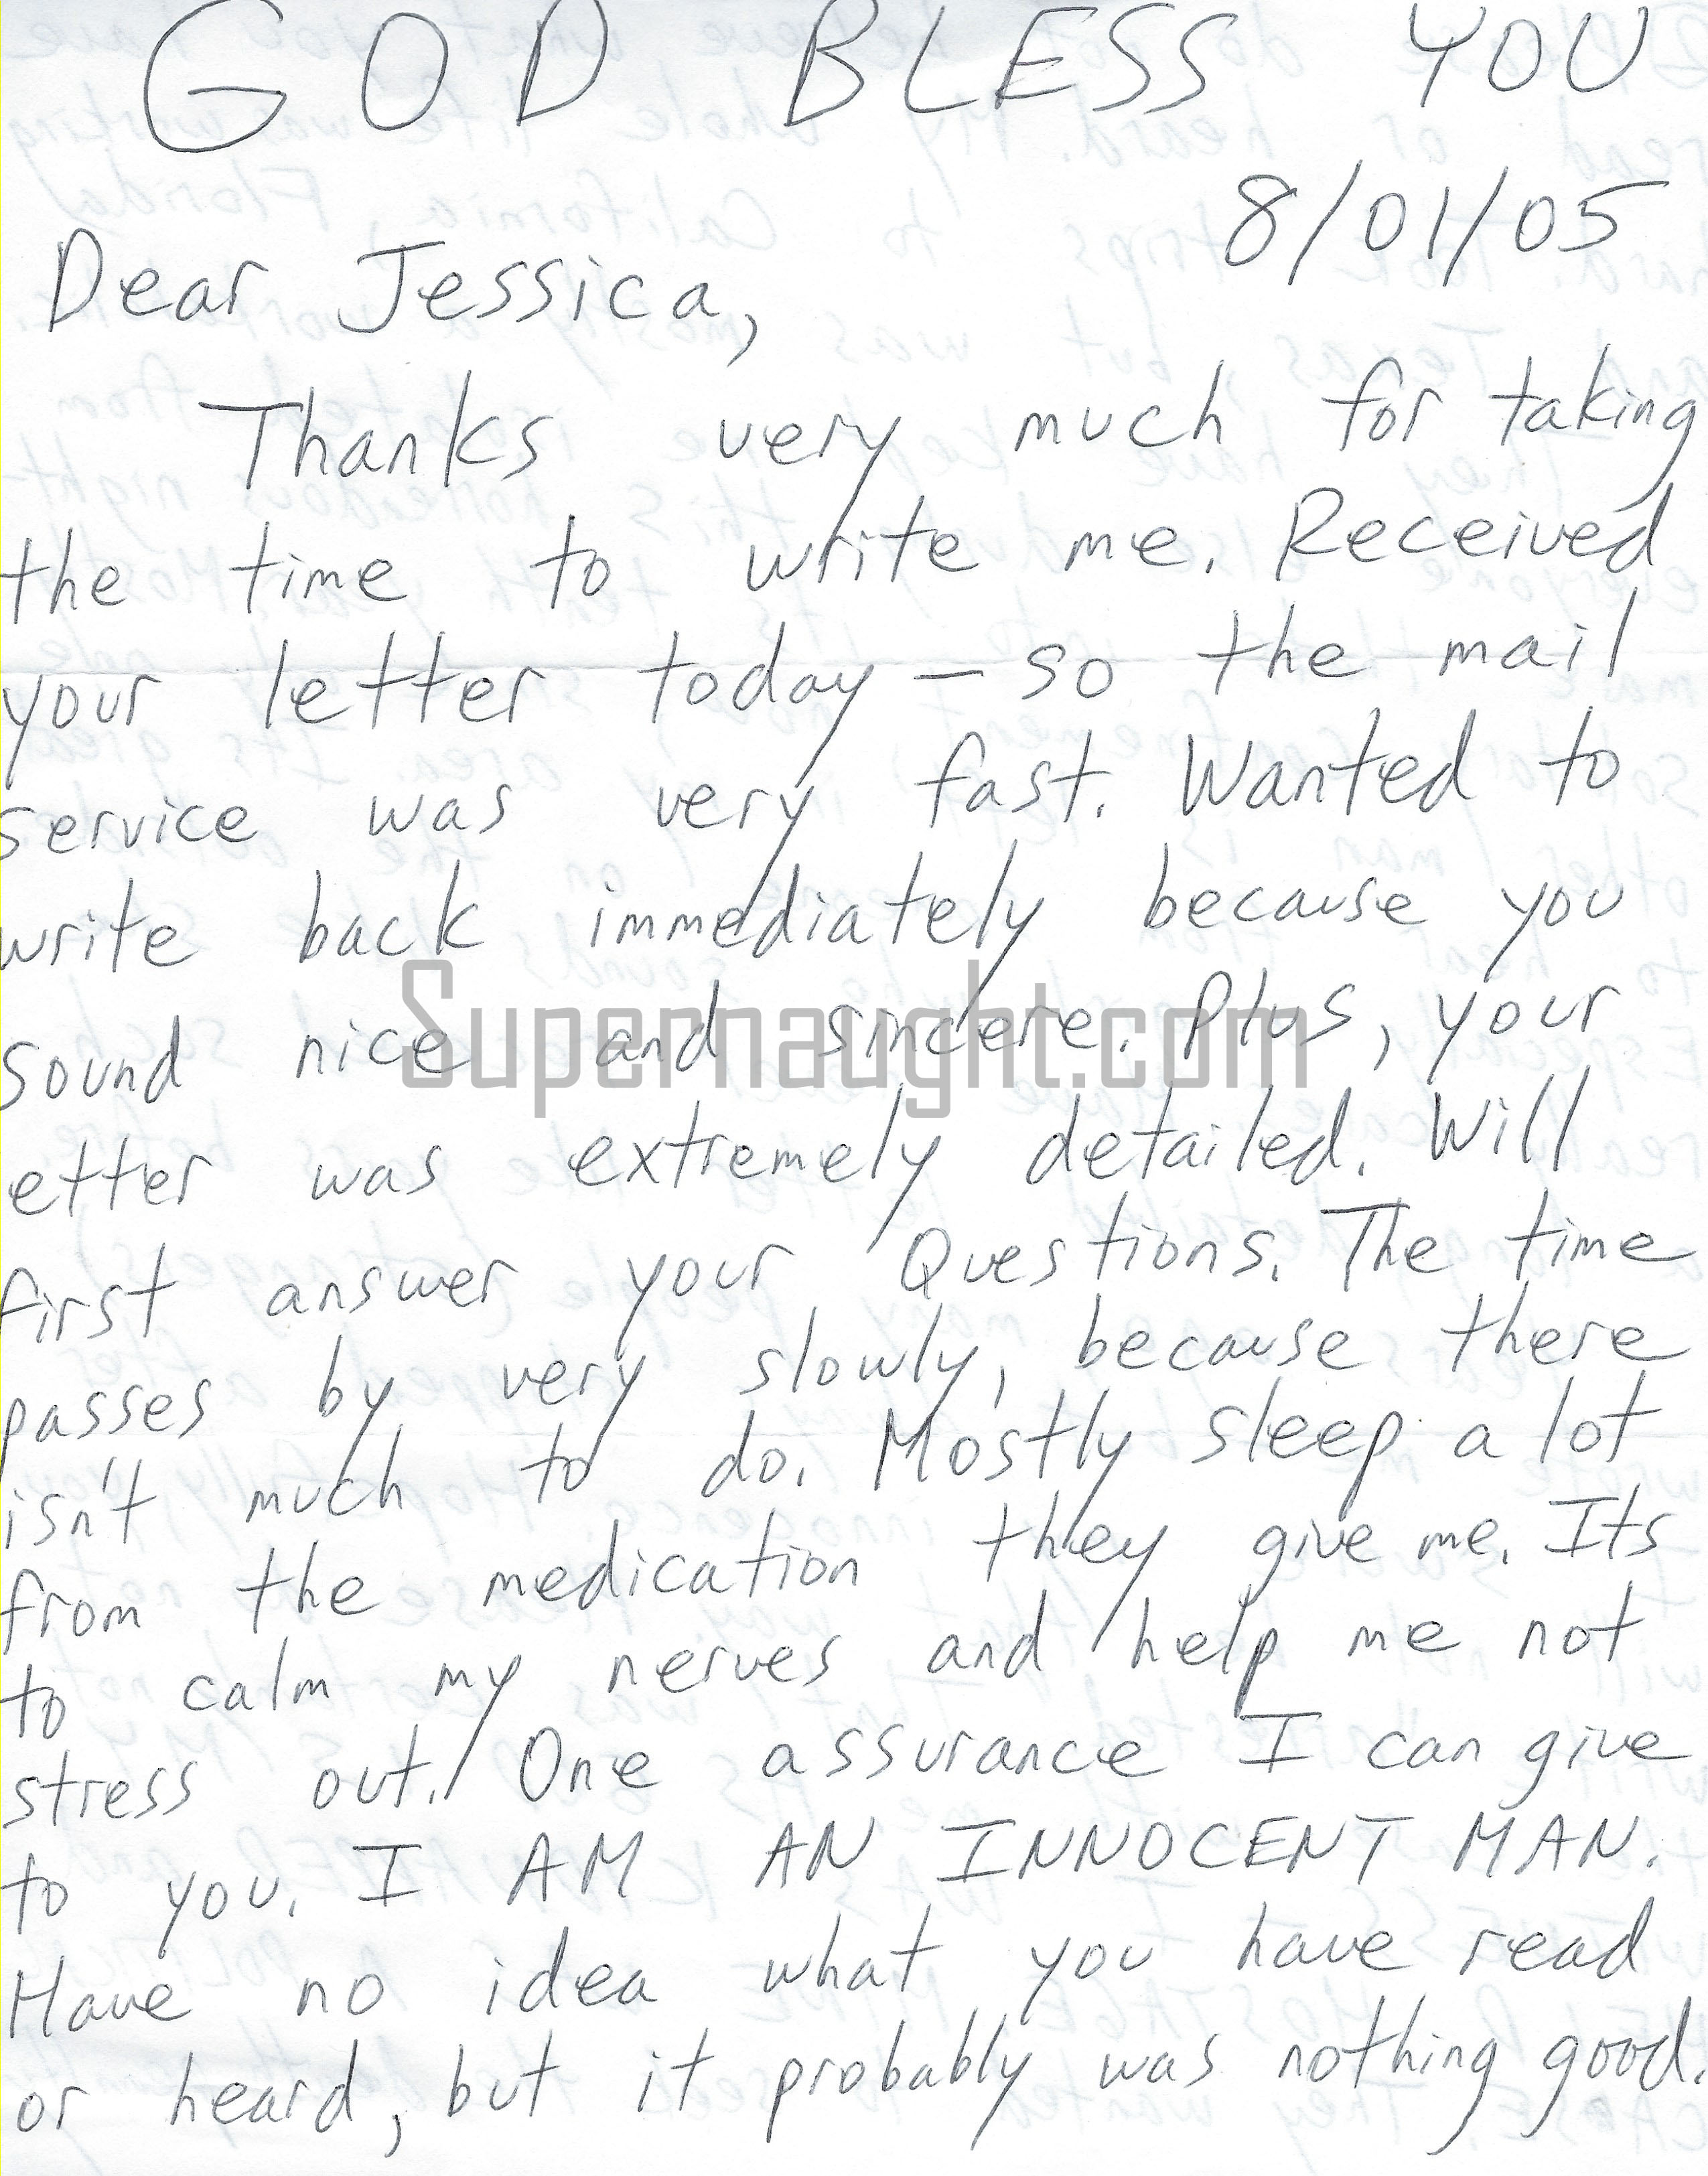 GOD BLESS YOU
8/01/05
Dear Jessica,
Thanks very much for taking
the time to write me. Received
your letter today - so the mail
service was very fast. Wanted to
write back immediately because you
sound nice and sincere. Plus, your
etter was extremely detailed. Will
first answer your Questions. The time
passes by very slowly, because there
isn't much to do. Mostly sleep a lot
from the medication they give me. Its
to calm my nerves and help me not
stress out. One assurance I can give
to you. I AM AN INNOCENT MAN.
Have no idea what you have read
or heard, but it probably was nothing good.
Supernaught.com